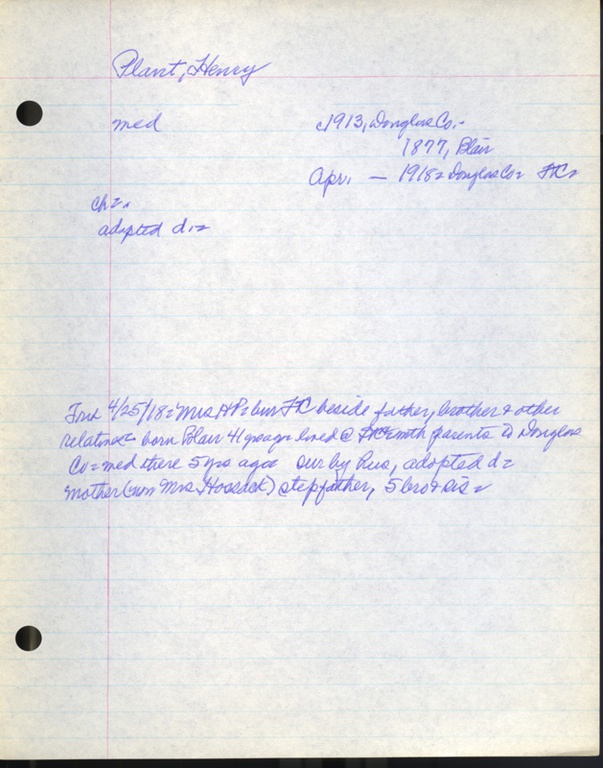 Plant, Henry
med c1913, Douglas Co.-
1877, Blair
Apr. — 1918= Douglas Co= FtC=
ch=.
adopted d.=
4/25/18= Mrs HP= bur FtC beside father, brother & other
relatives= born Blair 41 yrs ago= lived @ parents to Douglas
Co= med there 5 yrs ago= sur by hus, adopted d=
mother (now Mrs. Hossack) stepfather, 5 bro & sis=